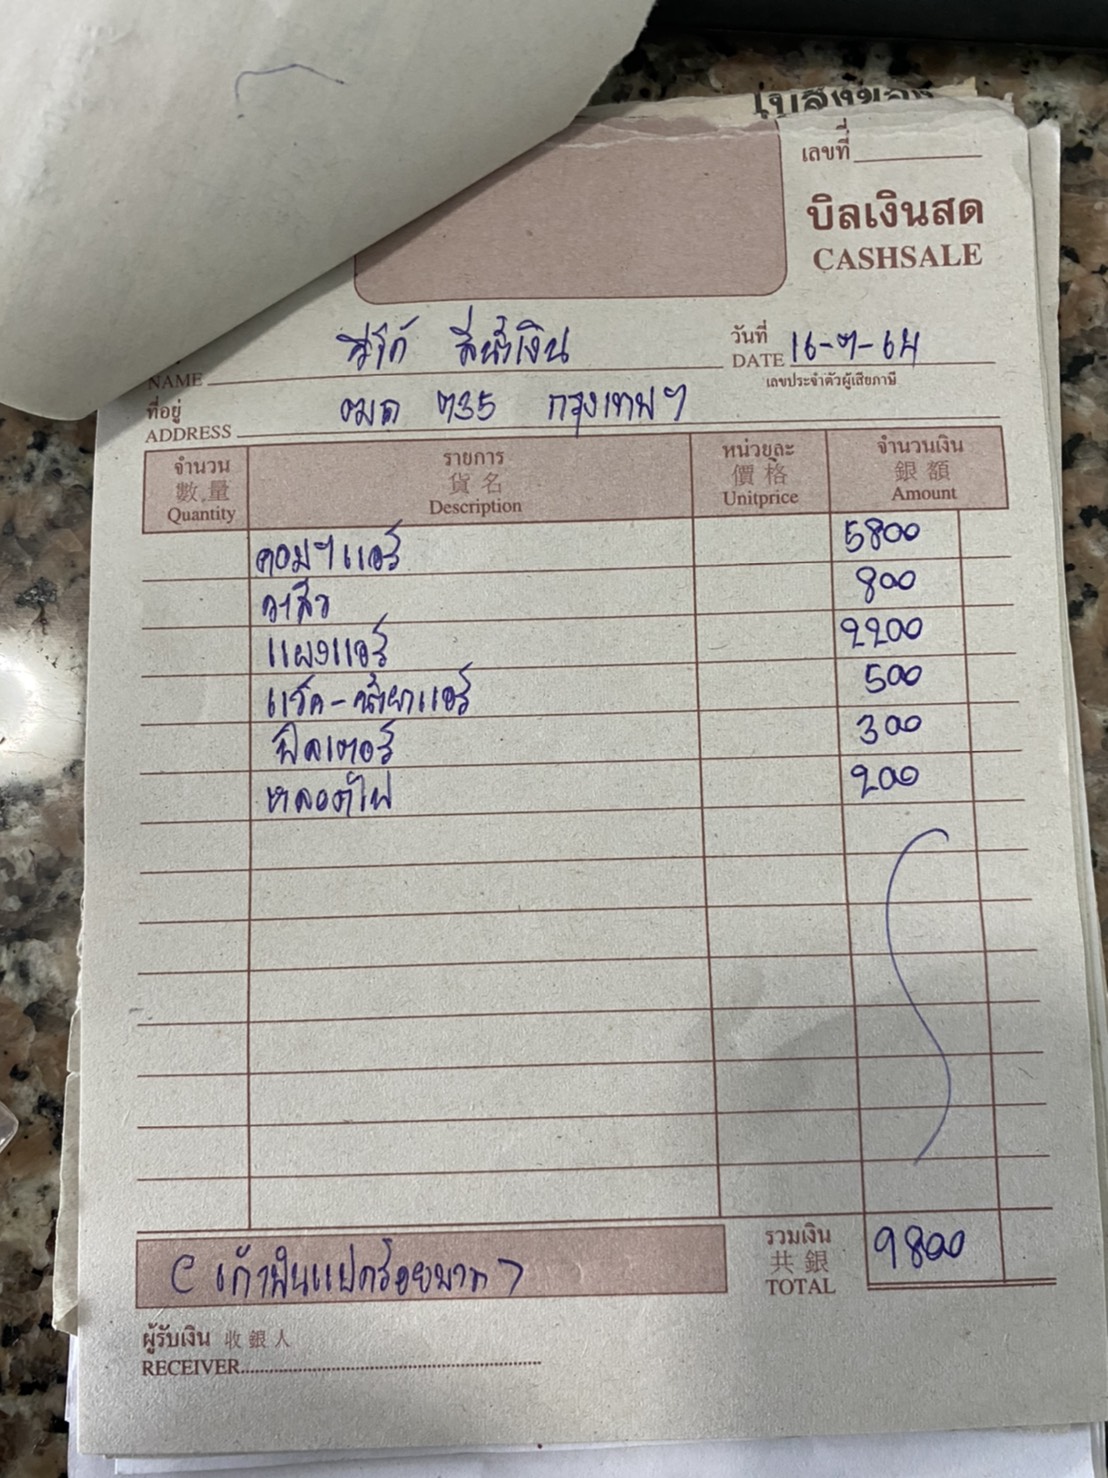 ใบส่งของ
เลขที่
บิลเงินสด
CASHSALE
วีโก้ สีน้ำเงิน
วันที่
NAME
DATE 16-7-64
เลขประจำตัวผู้เสียภาษี
ที่อยู่
ADDRESS ฒด 735 กรุงเทพฯ
จำนวน รายการ หน่วยละ จำนวนเงิน
數量 貨名 價格 銀額
Quantity Description Unitprice Amount
คอมฯแอร์ 5800
วาล์ว 800
แผงแอร์ 2200
แว๊ค-น้ำยาแอร์ 500
ฟิลเตอร์ 300
หลอดไฟ 200
รวมเงิน
共銀
TOTAL 9800
(เก้าพันแปดร้อยบาท)
ผู้รับเงิน 收銀人
RECEIVER